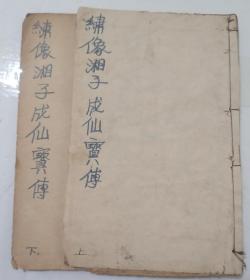 繡像湘子成仙寶傳
上
繡像湘子成仙寶傳
下